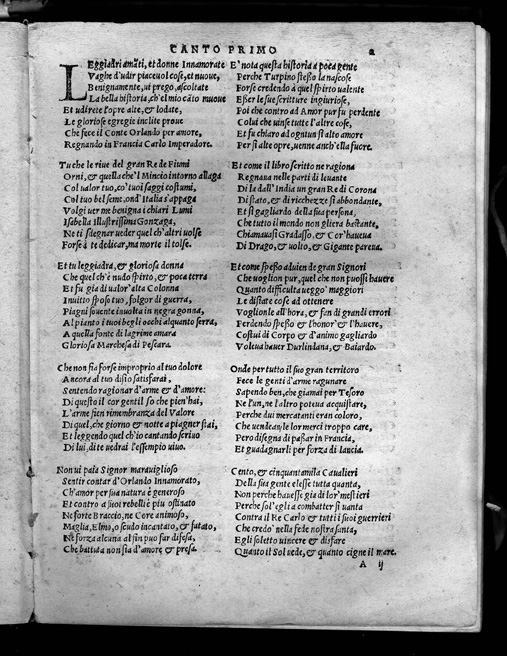 CANTO PRIMO
2
LEggiadri amāti, et donne Innamorate
Vaghe d'udir piaceuol cose, et nuoue,
Benignamente, ui prego, ascoltate
La bella historia, ch'el mio cāto muoue
Et udirete l'opre alte, & lodate
Le gloriose egregie inclite proue
Che fece il Conte Orlando per amore,
Regnando in Francia Carlo Imperadore.
Tu che le riue del gran Re de Fiumi
Orni, & quella che'l Mincio intorno allaga
Col ualor tuo, co'tuoi saggi costumi,
Col tuo bel seme, ond'Italia s'appaga
Volgi uer me benigna i chiari Lumi
Isabella Illustrissima Gonzaga,
Ne ti sdegnar ueder quel ch'altri uolse
Forse à te dedicar, ma morte il tolse.
Et tu leggiadra, & gloriosa donna
Che quel ch'è nudo spirto, & poca terra
Et fu gia di ualor'alta Colonna
Inuitto sposo tuo, folgor di guerra,
Piagni souente inuolta in negra gonna,
Al pianto i tuoi begli occhi alquanto serra,
A quella fonte di lagrime amara
Gloriosa Marchesa di Pescara.
Che non fia forse improprio al tuo dolore
Ancora al tuo disio satisfarai,
Sentendo ragionar d'arme & d'amore:
Di questo il cor gentil so che pien'hai,
L'arme fien rimembranza del Valore
Di quel, che giorno & notte a piagner stai,
Et leggendo quel ch'io cantando scriuo
Di lui, di te uedrai l'essempio uiuo.
Non ui paia Signor marauiglioso
Sentir contar d'Orlando Innamorato,
Ch'amor per sua natura è generoso
Et contro a suoi rebelli è piu ostinato
Ne forte Braccio, ne Core animoso,
Maglia, Elmo, o scudo incantato, & fatato,
Ne forza alcuna al fin puo far difesa,
Che battuta non sia d'amore & presa.
E'nota questa historia a poca gente
Perche Turpino stesso la nascose
Forse credendo a quel spirto ualente
Esser le sue scritture ingiuriose,
Poi che contro ad Amor pur fu perdente
Colui che uinse tutte l'altre cose,
Et fu chiaro ad ogn'un si alto amore
Per si alte opre, uenne anch'ella fuore.
Et come il libro scritto ne ragiona
Regnaua nelle parti di leuante
Di la dall'India un gran Re di Corona
Di stato, & di ricchezze si abbondante,
Et si gagliardo della sua persona,
Che tutto il mondo non gliera bastante,
Chiamauasi Gradasso, & Cor'haueua
Di Drago, & uolto, & Gigante pareua.
Et come spesso aduien de gran Signori
Che uoglion pur, quel che non puossi hauere
Quanto difficulta ueggo' maggiori
Le disiate cose ad ottenere
Voglionle all'hora, & fan di grandi errori
Perdendo spesso & l'honor'& l'hauere,
Costui di Corpo & d'animo gagliardo
Voleua hauer Durlindana, & Baiardo.
Onde per tutto il suo gran territoro
Fece le genti d'arme ragunare
Sapendo ben, che giamai per Tesoro
Ne l'un, ne l'altro poteua acquistare,
Perche dui mercatanti eran coloro,
Che uendean le lor merci troppo care,
Pero disegna di passar in Francia,
Et guadagnarli per forza di lancia.
Cento, & cinquantamila Caualieri
Della sua gente elesse tutta quanta,
Non perche hauesse gia di lor'mestieri
Perche sol'egli a combatter si uanta
Contra il Re Carlo & tutti i suoi guerrieri
Che credo' nella fede nostra santa,
Egli soletto uincere & disfare
Quanto il Sol uede, & quanto cigne il mare.
A ij